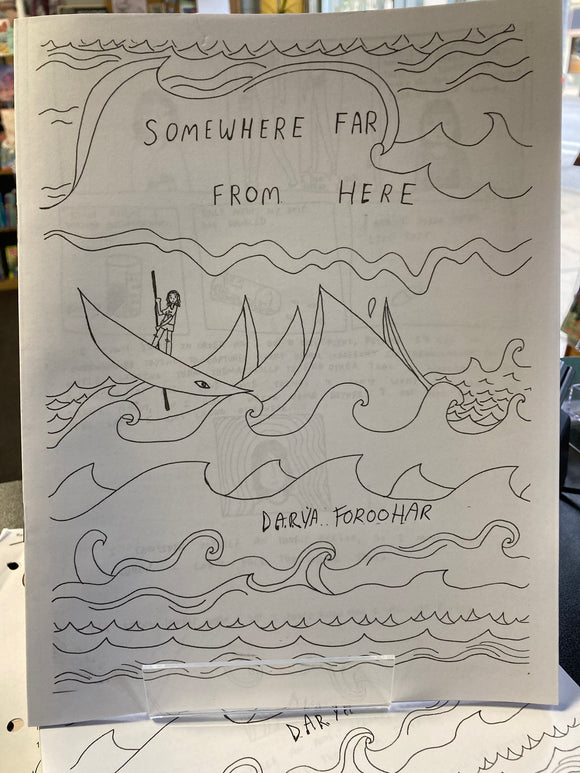 SOMEWHERE FAR
FROM HERE
DARYA FOROOHAR
DARYA